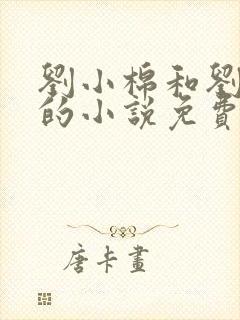 劉小棉和劉
的小說免費
唐卡畫